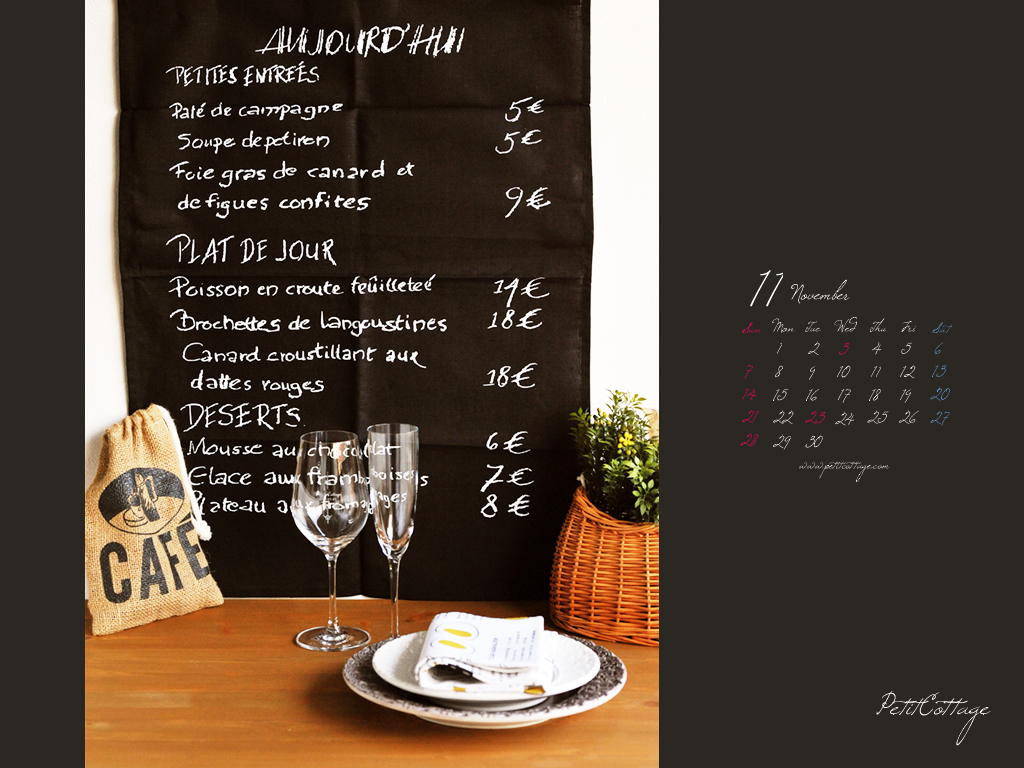 AUJOURD'HUI
PETITES ENTREÉS
Paté de campagne 5€
Soupe de potiron 5€
Foie gras de canard et
de figues confites 9€
PLAT DE JOUR
Poisson en croute feüilleteé 14€
Brochettes de langoustines 18€
Canard croustillant aux
dattes rouges 18€
DESERTS
Mousse au chocolat 6€
Glace aux framboises 7€
Plateau aux fromages 8€
CAFÉ
11 November
Sun Mon Tue Wed Thu Fri Sat
1 2 3 4 5 6
7 8 9 10 11 12 13
14 15 16 17 18 19 20
21 22 23 24 25 26 27
28 29 30
www.petitcottage.com
PetitCottage